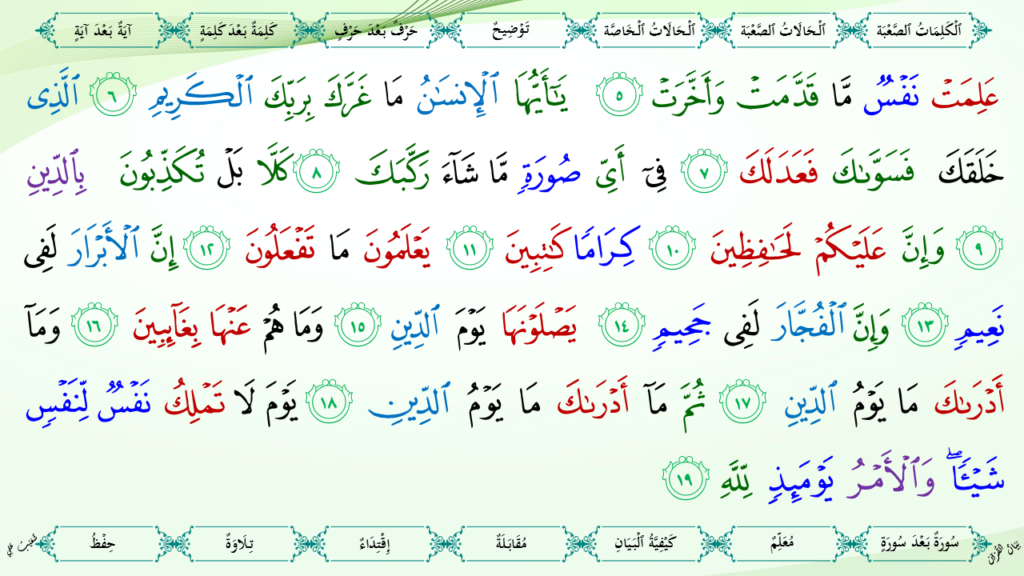 اَلْكَلِمَاتُ الصَّعْبَة اَلْحَالَاتُ الصَّعْبَة اَلْحَالَاتُ الْخَاصَّة تَوْضِيحٌ حَرْفٌ بَعْدَ حَرْفٍ كَلِمَةٌ بَعْدَ كَلِمَةٍ آيَةٌ بَعْدَ آيَةٍ
عَلِمَتْ نَفْسٌ مَّا قَدَّمَتْ وَأَخَّرَتْ ٥ يَـٰٓأَيُّهَا ٱلْإِنسَـٰنُ مَا غَرَّكَ بِرَبِّكَ ٱلْكَرِيمِ ٦ ٱلَّذِى
خَلَقَكَ فَسَوَّىٰكَ فَعَدَلَكَ ٧ فِىٓ أَىِّ صُورَةٍ مَّا شَآءَ رَكَّبَكَ ٨ كَلَّا بَلْ تُكَذِّبُونَ بِٱلدِّينِ
٩ وَإِنَّ عَلَيْكُمْ لَحَـٰفِظِينَ ١٠ كِرَامًا كَـٰتِبِينَ ١١ يَعْلَمُونَ مَا تَفْعَلُونَ ١٢ إِنَّ ٱلْأَبْرَارَ لَفِى
نَعِيمٍ ١٣ وَإِنَّ ٱلْفُجَّارَ لَفِى جَحِيمٍ ١٤ يَصْلَوْنَهَا يَوْمَ ٱلدِّينِ ١٥ وَمَا هُمْ عَنْهَا بِغَآئِبِينَ ١٦ وَمَآ
أَدْرَىٰكَ مَا يَوْمُ ٱلدِّينِ ١٧ ثُمَّ مَآ أَدْرَىٰكَ مَا يَوْمُ ٱلدِّينِ ١٨ يَوْمَ لَا تَمْلِكُ نَفْسٌ لِّنَفْسٍ
شَيْـًٔا ۖ وَٱلْأَمْرُ يَوْمَئِذٍ لِّلَّهِ ١٩
سُورَةٌ بَعْدَ سُورَةٍ مُعَلِّمٌ كَيْفِيَّةُ الْبَيَانِ مُقَابَلَةٌ إِقْتِدَاءٌ تِلَاوَةٌ حِفْظٌ
بَيَانُ القُرْآن